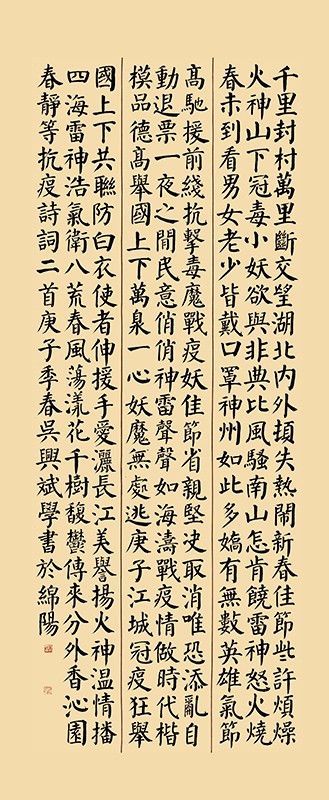 千里封村萬里斷交望湖北内外頓失熱鬧新春佳節些許煩燥
火神山下冠毒小妖欲與非典比風騷南山怎肯饒雷神怒火燒
春未到看男女老少皆戴口罩神州如此多嬌有無數英雄氣節
髙馳援前綫抗擊毒魔戰疫妖佳節省親堅决取消唯恐添亂自
動退票一夜之間民意俏俏神雷聲聲如海濤戰疫情做時代楷
模品德髙舉國上下萬泉一心妖魔無處逃庚子江城冠疫狂舉
國上下共聯防白衣使者伸援手愛灑長江美譽揚火神温情播
四海雷神浩氣衛八荒春風蕩漾花千樹馥鬱傳來分外香沁園
春靜等抗疫詩詞二首庚子季春吳興斌學書於綿陽